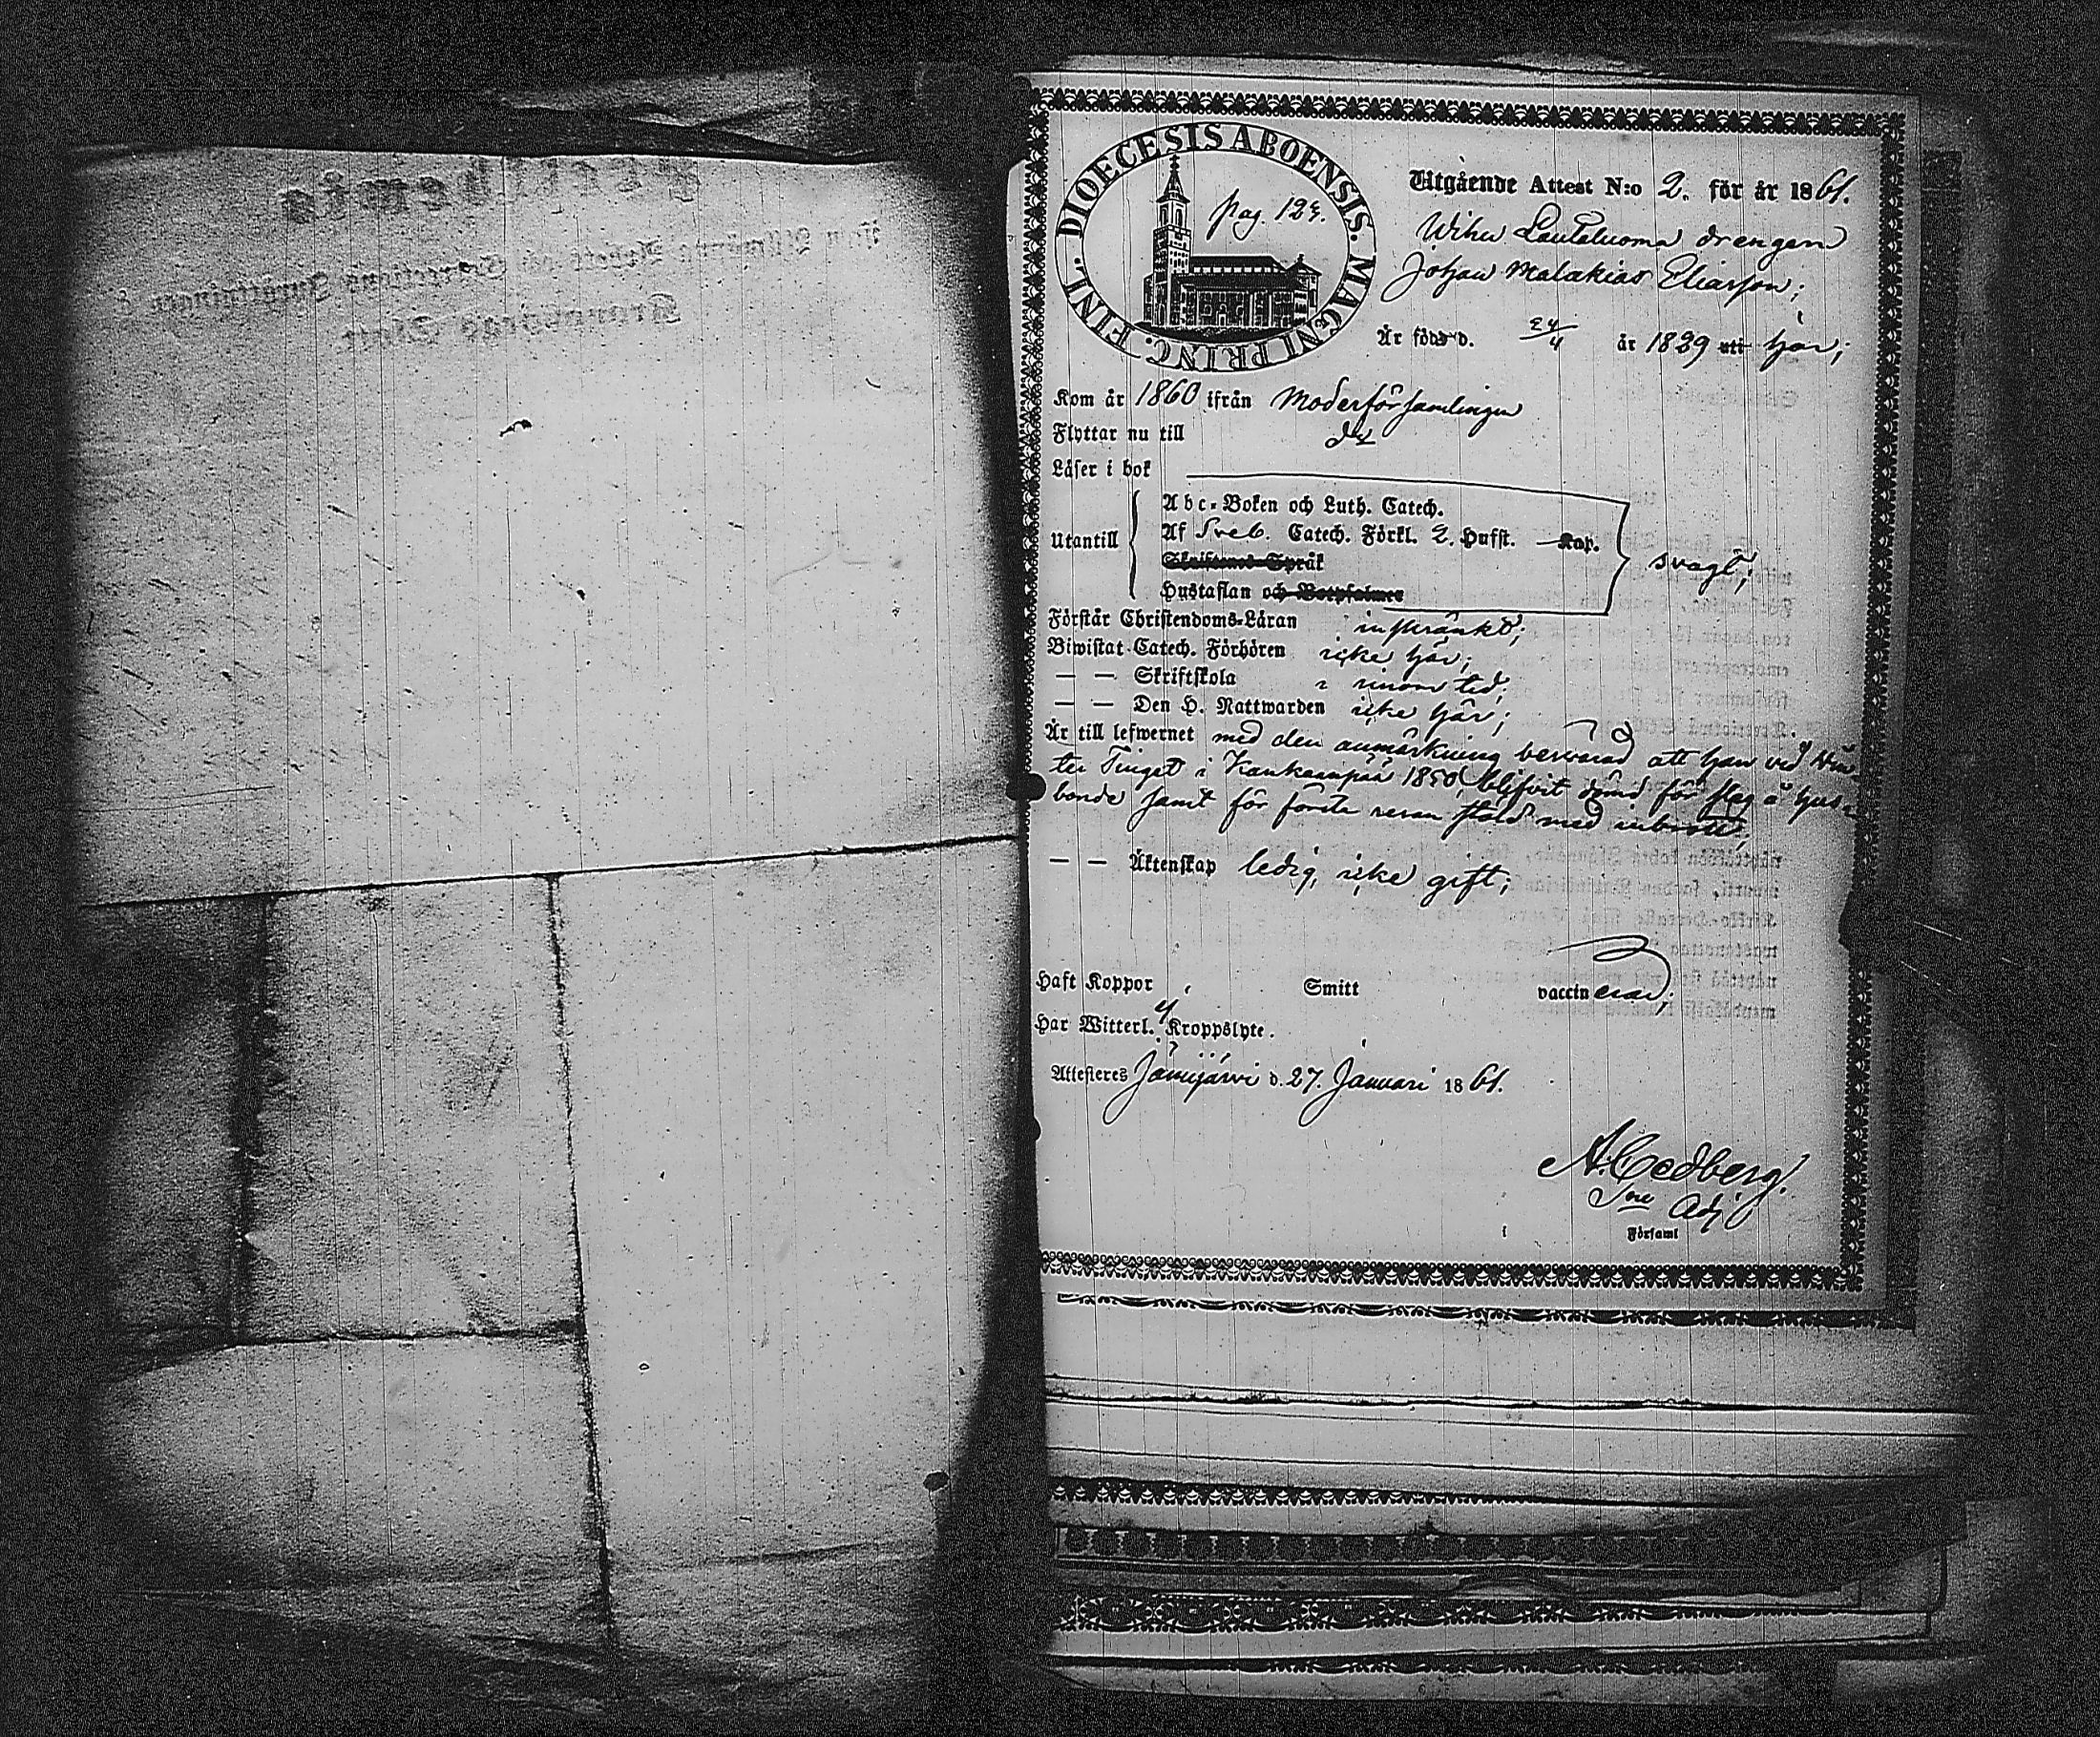 DIOECESIS ABOENSIS. MAGNI PRINC. FINL.
pag. 123.
Utgående Attest N:o 2. för år 1861.
Wihu Lautaluoma drengen
Johan Malakias Eliasson;
Är född d. 24/4 år 1829 uti här;
Kom år 1860 ifrån Moderförsamlingen
Flyttar nu till d:o
Läser i bok
Abc-Boken och Luth. Catech.
Utantill Af Sveb. Catech. Förkl. 2. Hufst. Kap. svagt;
Skriftenes Språk
Hustaflan och Botpsalmer
Förstår Christendoms-Läran inskränkt;
Biwistat Catech. Förhören icke här;
— — Skriftskola i sinom tid;
— — Den H. Nattwarden icke här;
Är till lefwernet med den anmärkning bewarad att han vid Win-
ter Tinget i Kankaanpää 1850, blifvit dömd för slag å hus-
bonde samt för första resan stöld med inbrott;
— — Äktenskap ledig, icke gift;
Haft Koppor, Smitt vaccinerad;
Har Witterl. Kroppslyte.
Attesteras Jämijärvi d. 27. Januari 1861.
A. Cedberg.
Adj
Församl